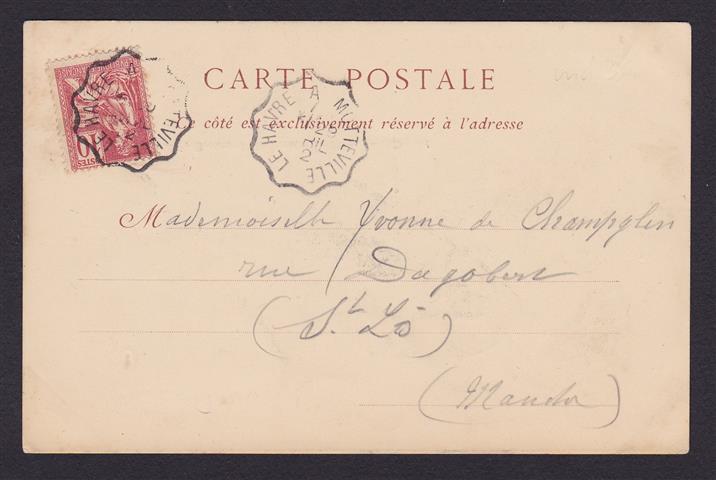 CARTE POSTALE
Ce côté est exclusivement réservé à l'adresse
LE HAVRE A MOTTEVILLE
LE HAVRE A TEVILLE
10
POSTES
Mademoiselle Yvonne de Champglin
rue Dagobert
(St Lô)
(Manche)